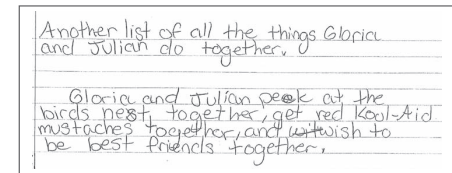 Another list of all the things Gloria
and Julian do together.
Gloria and Julian peek at the
birds nest together, get red Kool-Aid
mustaches together, and wish to
be best friends together.